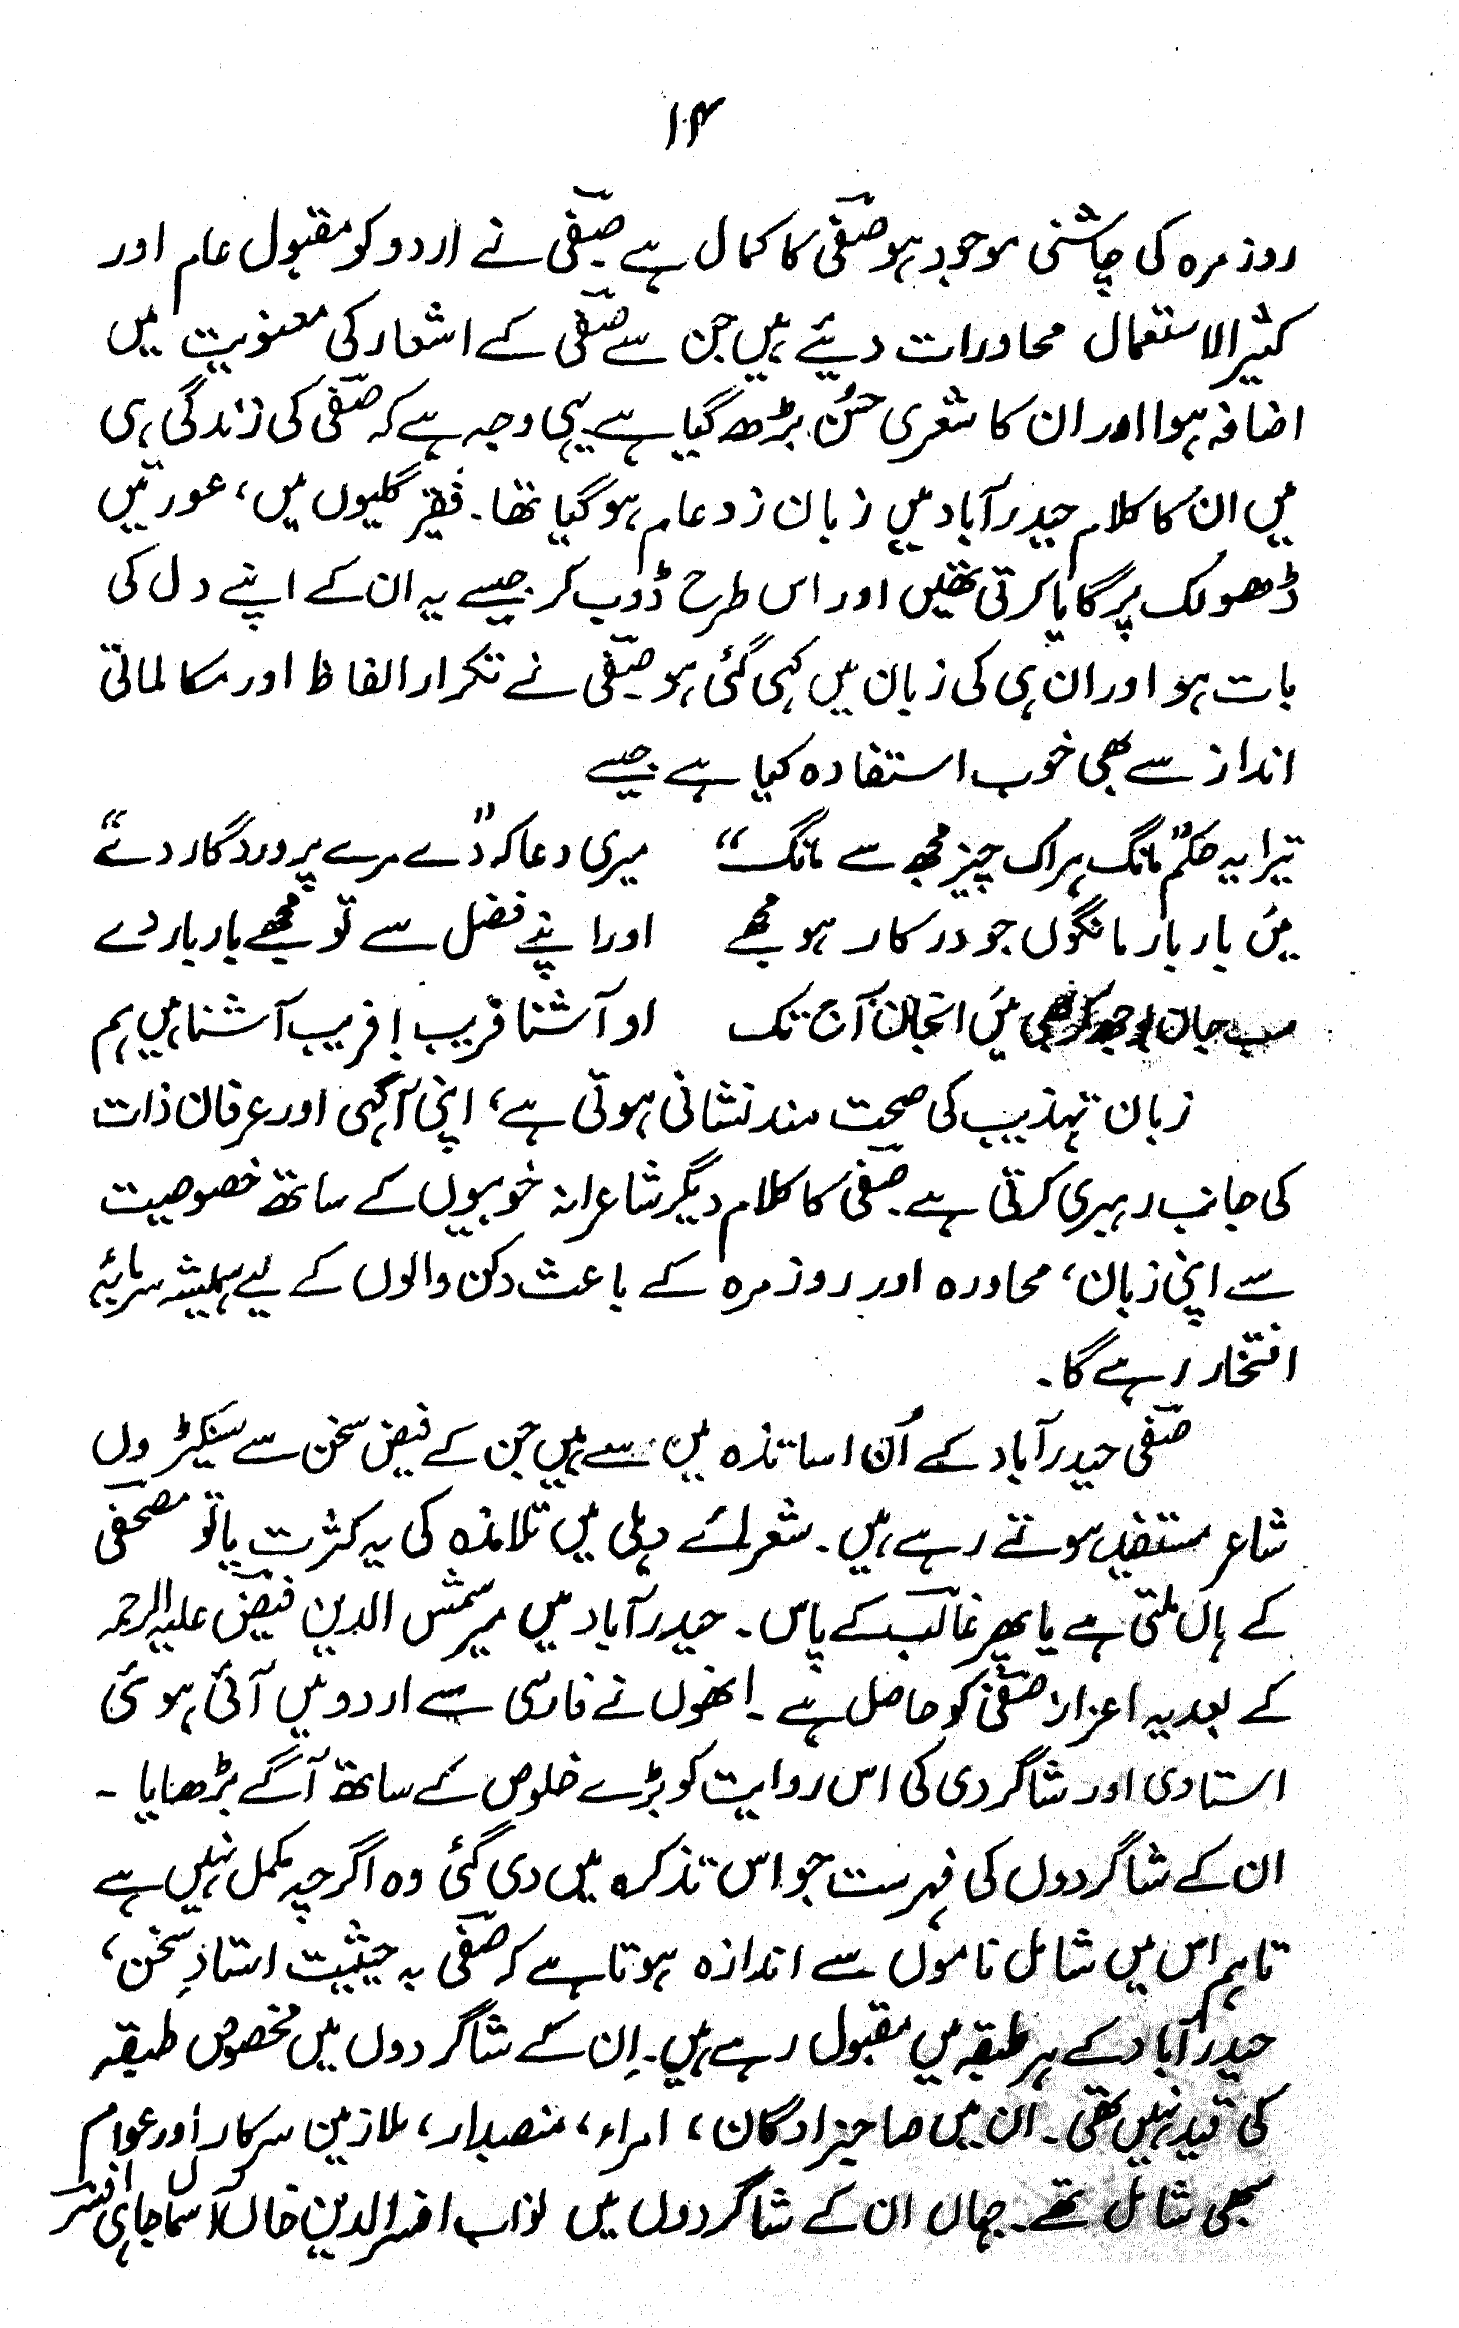 ۱۴
روز مرہ کی چاشنی موجود ہو صفیؔ کا کمال ہے۔ صفیؔ نے اردو کو مقبول عام اور
کثیر الاستعمال محاورات دیئے ہیں جن سے صفیؔ کے اشعار کی معنویت میں
اضافہ ہوا اور ان کا شعری حسُن بڑھ گیا ہے۔ یہی وجہ ہے کہ صفیؔ کی زندگی ہی
میں ان کا کلام حیدرآباد میں زبان زد عام ہو گیا تھا۔ فقیر گلیوں میں، عورتیں
ڈھولک پر گایا کرتی تھیں اور اس طرح ڈوب کر جیسے یہ ان کے اپنے دل کی
بات ہو اور ان ہی کی زبان میں کہی گئی ہو۔ صفیؔ نے تکرار الفاظ اور مکالماتی
انداز سے بھی خوب استفادہ کیا ہے جیسے
تیرا یہ حکم ”مانگ ہر اک چیز مجھ سے مانگ“ میری دعا کہ ”دے مرے پروردگار دے“
میں بار بار مانگوں جو درکار ہو مجھے اور اپنے فضل سے تو مجھے بار بار دے
سب جان بوجھ کر بھی میں انجان آج تک او آشنا فریب! فریب آشنا ہیں ہم
زبان تہذیب کی صحت مند نشانی ہوتی ہے، اپنی آگہی اور عرفان ذات
کی جانب رہبری کرتی ہے۔ صفیؔ کا کلام دیگر شاعرانہ خوبیوں کے ساتھ خصوصیت
سے اپنی زبان، محاورہ اور روز مرہ کے باعث دکن والوں کے لیے ہمیشہ سرمایۂ
افتخار رہے گا۔
صفیؔ حیدرآباد کے اُن اساتذہ میں سے ہیں جن کے فیض سخن سے سینکڑوں
شاعر مستفید ہوتے رہے ہیں۔ شعرائے دہلی میں تلامذہ کی یہ کثرت یا تو مصحفیؔ
کے ہاں ملتی ہے یا پھر غالبؔ کے پاس۔ حیدرآباد میں میر شمس الدین فیضؔ علیہ الرحمہ
کے بعد یہ اعزاز صفیؔ کو حاصل ہے۔ انھوں نے فارسی سے اردو میں آئی ہوئی
استادی اور شاگردی کی اس روایت کو بڑے خلوص کے ساتھ آگے بڑھایا۔
ان کے شاگردوں کی فہرست جو اس تذکرہ میں دی گئی وہ اگرچہ مکمل نہیں ہے
تاہم اس میں شامل ناموں سے اندازہ ہوتا ہے کہ صفیؔ بہ حیثیت استاذِ سخن،
حیدرآباد کے ہر طبقہ میں مقبول رہے ہیں۔ اِن کے شاگردوں میں مخصوص طبقہ
کی قید نہیں تھی۔ ان میں صاحبزادگان، امراء، منصبدار، ملازمین سرکار اور عوام
سبھی شامل تھے۔ جہاں ان کے شاگردوں میں نواب افسر الدین خاں آسماں جاہی افسرؔ